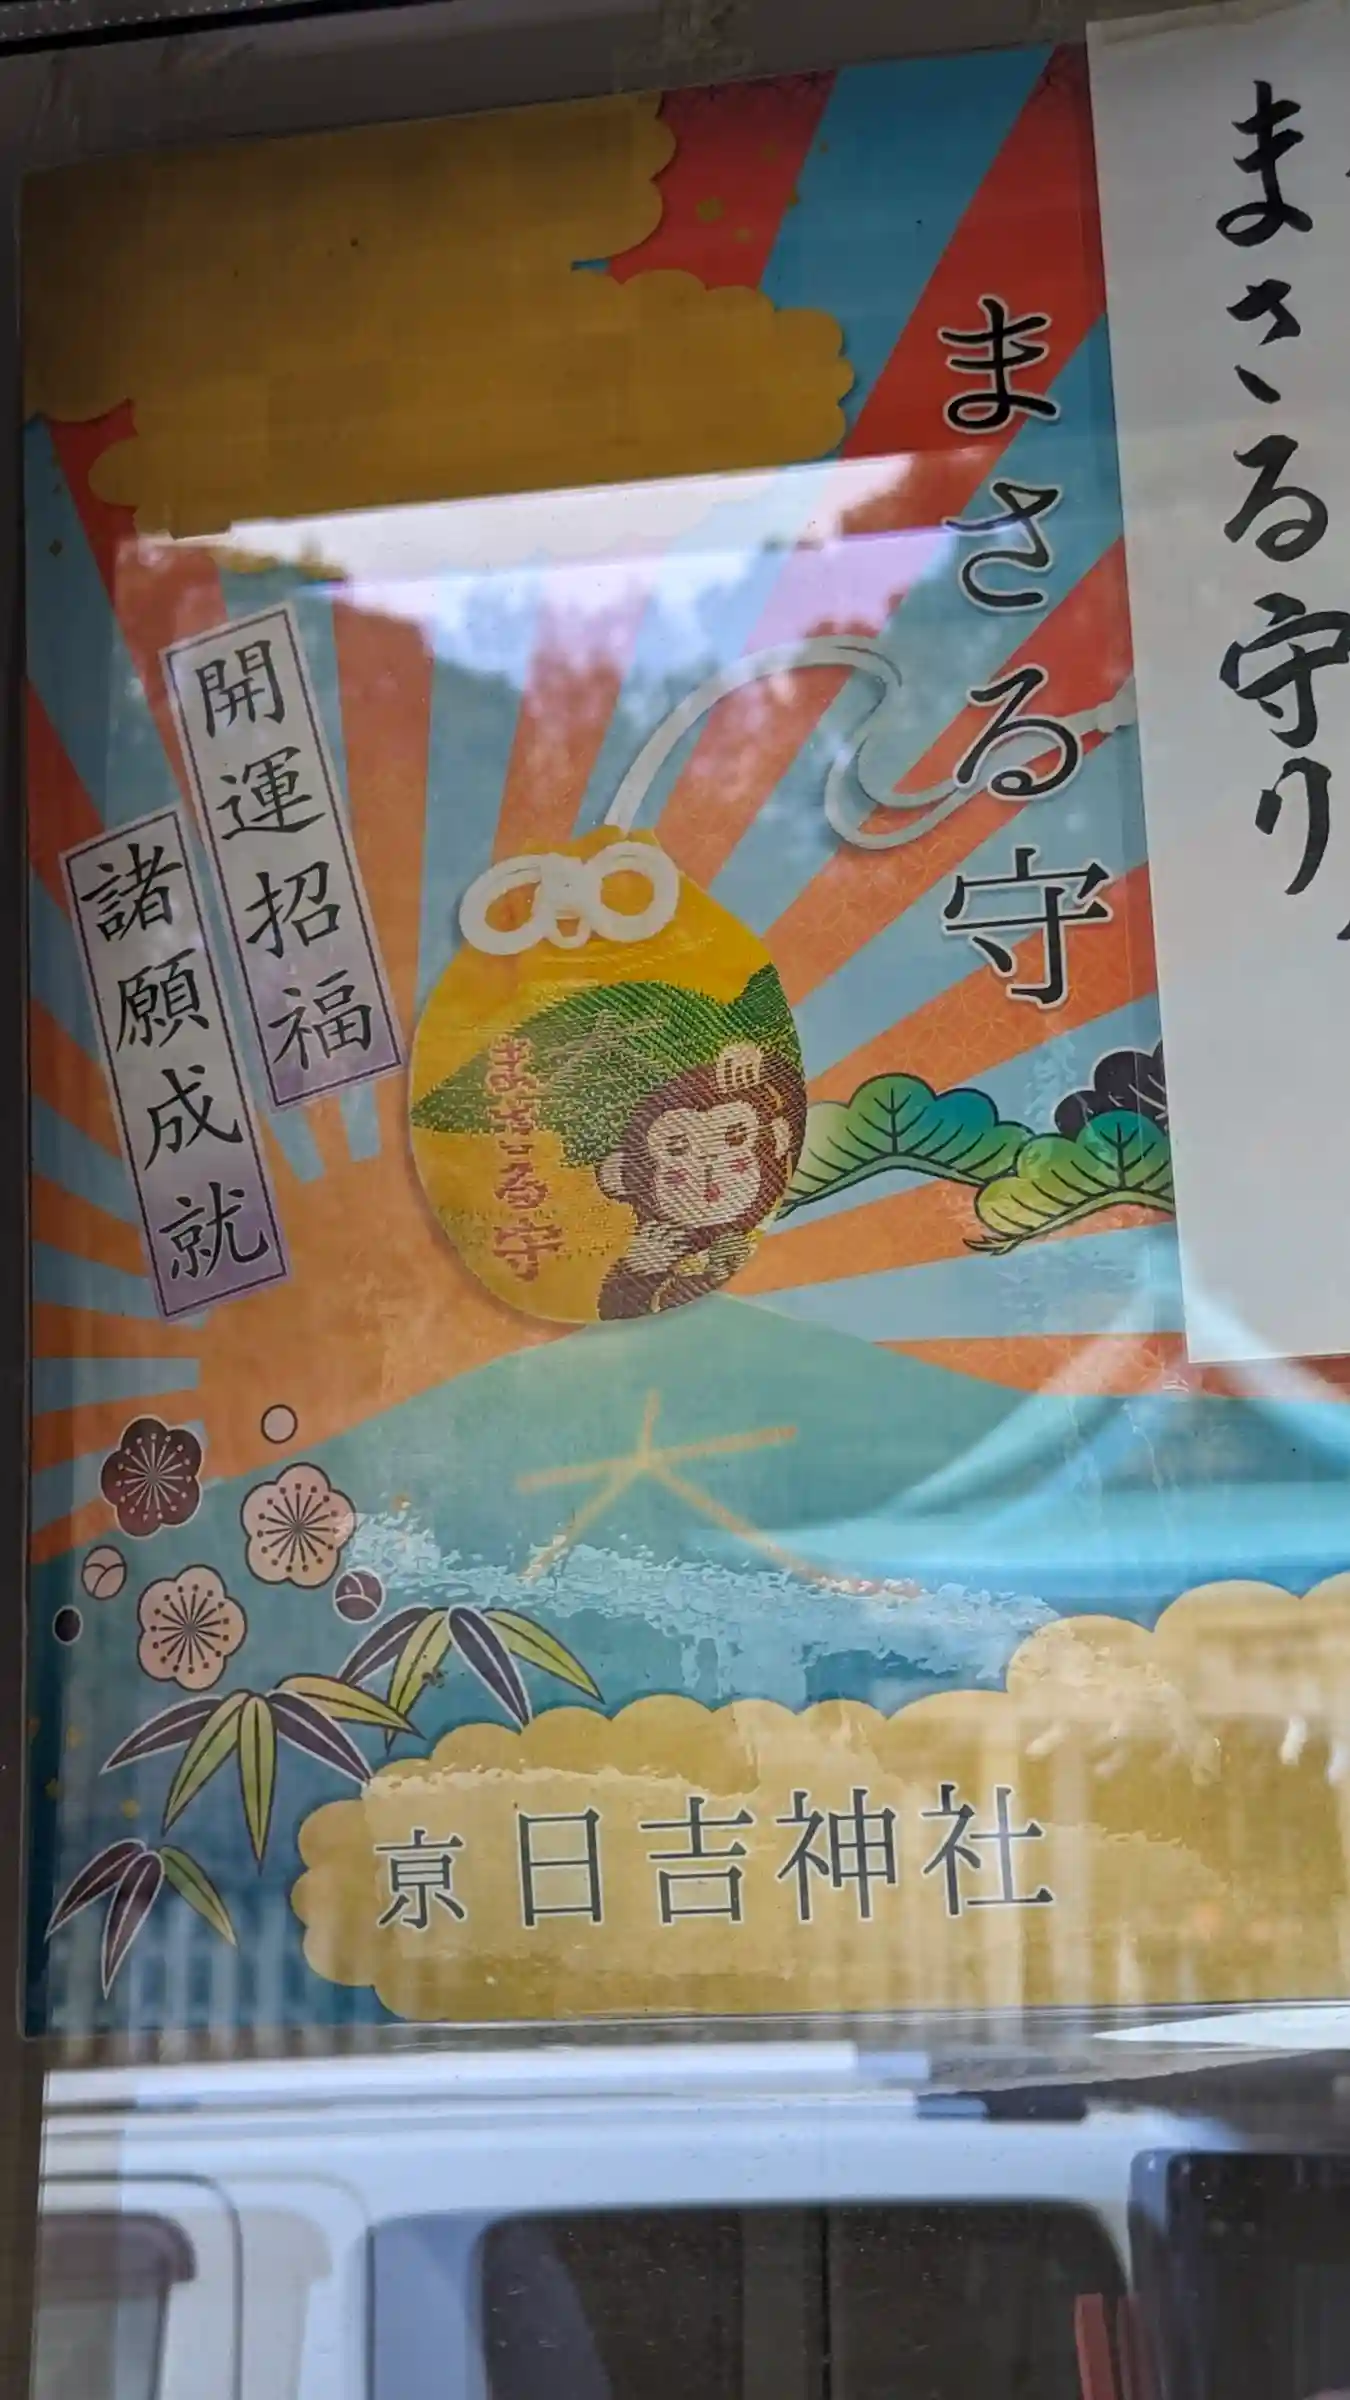 まさる守り
まさる守
開運招福
諸願成就
大
まさる守
大
京日吉神社